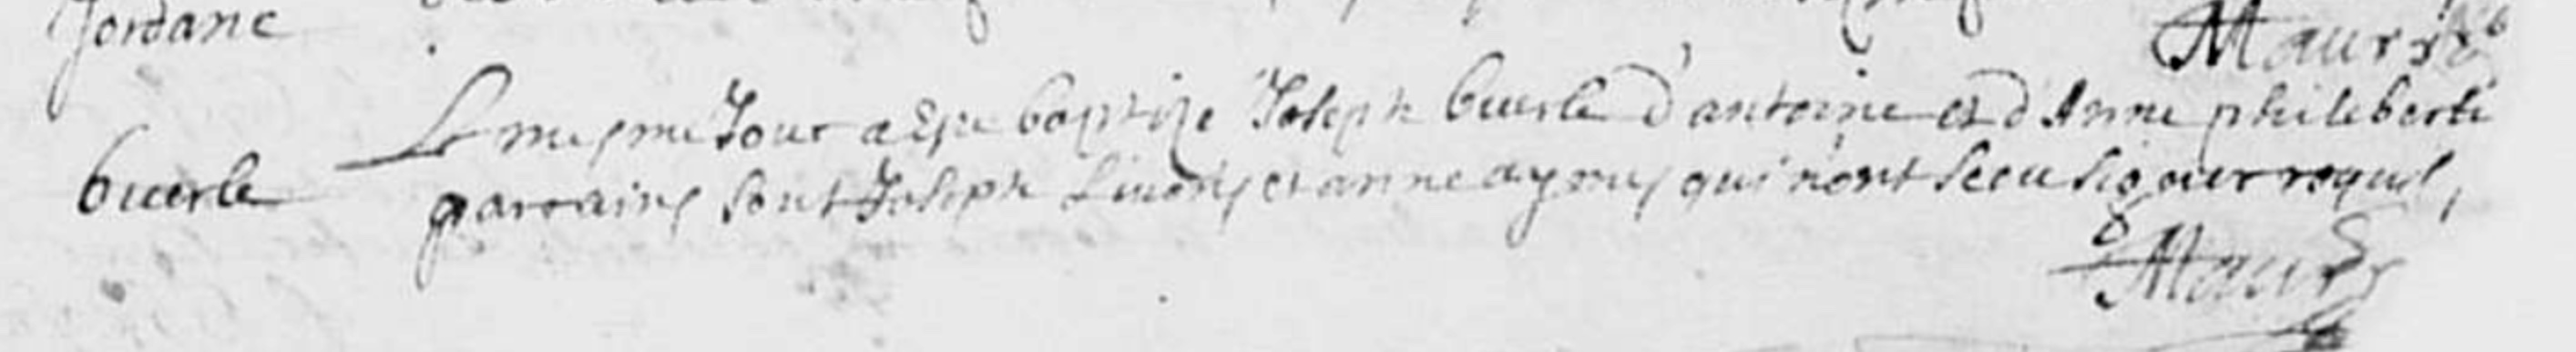 Jordane
Maurs
Le mesme Jour a este baptize Joseph buerle d'antoine et d'Anne phileberte
buerle
parrains sont Joseph et anne aymes qui n'ont sceu signer requis,
Maurs